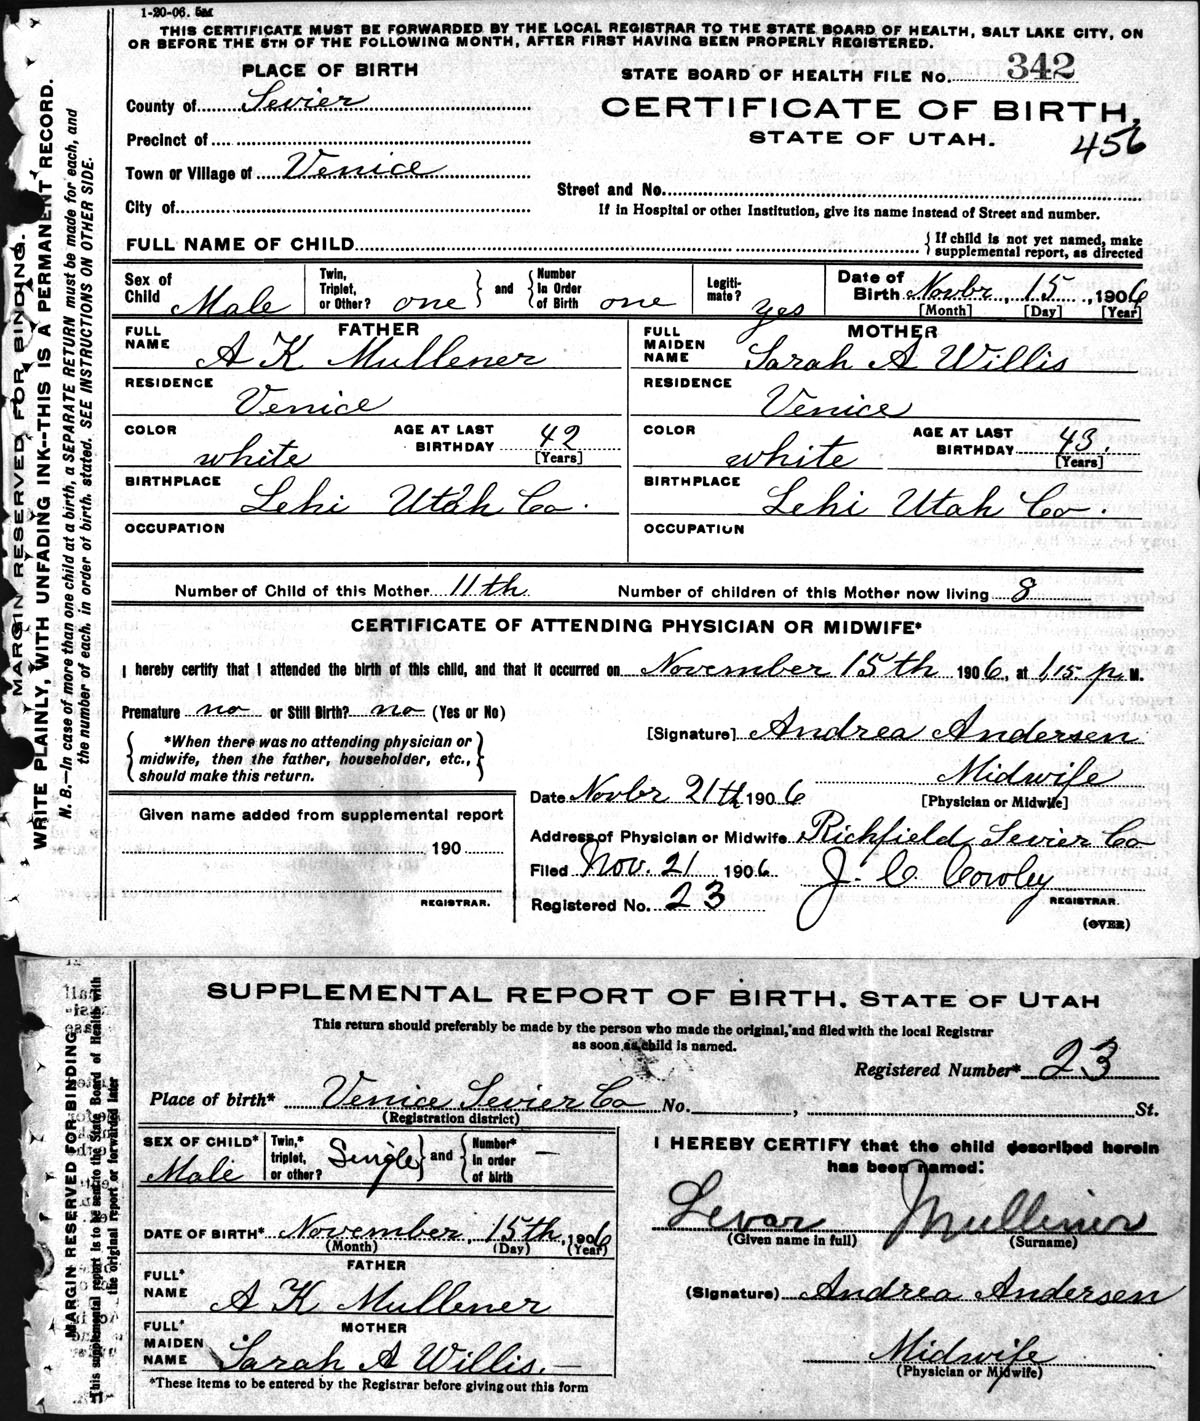 1-20-06. 5M
THIS CERTIFICATE MUST BE FORWARDED BY THE LOCAL REGISTRAR TO THE STATE BOARD OF HEALTH, SALT LAKE CITY, ON
OR BEFORE THE 5TH OF THE FOLLOWING MONTH, AFTER FIRST HAVING BEEN PROPERLY REGISTERED.
PLACE OF BIRTH
STATE BOARD OF HEALTH FILE No. 342
County of Sevier
CERTIFICATE OF BIRTH,
STATE OF UTAH.
456
Precinct of
Town or Village of Venice
Street and No.
City of
If in Hospital or other Institution, give its name instead of Street and number.
FULL NAME OF CHILD
{If child is not yet named, make
supplemental report, as directed
Sex of Child Male
Twin, Triplet, or Other? one } and { Number In Order of Birth one
Legiti-mate? yes
Date of Birth Novbr, 15, 1906
[Month] [Day] [Year]
FATHER
FULL NAME A K Mullener
MOTHER
FULL MAIDEN NAME Sarah A Willis
RESIDENCE Venice
RESIDENCE Venice
COLOR white
AGE AT LAST BIRTHDAY 42 [Years]
COLOR white
AGE AT LAST BIRTHDAY 43. [Years]
BIRTHPLACE Lehi Utah Co.
BIRTHPLACE Lehi Utah Co.
OCCUPATION
OCCUPATION
Number of Child of this Mother 11th Number of children of this Mother now living 8
CERTIFICATE OF ATTENDING PHYSICIAN OR MIDWIFE*
I hereby certify that I attended the birth of this child, and that it occurred on November 15th 1906, at 1,15 p M.
Premature no or Still Birth? no (Yes or No)
{*When there was no attending physician or
midwife, then the father, householder, etc.,
should make this return.}
[Signature] Andrea Andersen
Midwife
[Physician or Midwife]
Date Novbr 21th 1906
Given name added from supplemental report
190
REGISTRAR.
Address of Physician or Midwife Richfield Sevier Co
Filed Nov. 21 1906 J. C Cowley
Registered No. 23
REGISTRAR.
(OVER)
MARGIN RESERVED FOR BINDING.
WRITE PLAINLY, WITH UNFADING INK--THIS IS A PERMANENT RECORD.
N. B.—In case of more than one child at a birth, a SEPARATE RETURN must be made for each, and
the number of each, in order of birth, stated. SEE INSTRUCTIONS ON OTHER SIDE.
SUPPLEMENTAL REPORT OF BIRTH, STATE OF UTAH
This return should preferably be made by the person who made the original, and filed with the local Registrar
as soon as child is named.
Registered Number* 23
Place of birth* Venice Sevier Co No. , St.
(Registration district)
SEX OF CHILD* Male
Twin,* triplet, or other? Single } and { Number* in order of birth —
DATE OF BIRTH* November, 15th, 1906
(Month) (Day) (Year)
FATHER
FULL* NAME A K Mullener
MOTHER
FULL* MAIDEN NAME Sarah A Willis.—
*These items to be entered by the Registrar before giving out this form
I HEREBY CERTIFY that the child described herein
has been named:
Levar Mullener
(Given name in full) (Surname)
(Signature) Andrea Andersen
Midwife
(Physician or Midwife)
MARGIN RESERVED FOR BINDING
This supplemental report is to be sent to the State Board of Health with
the original report or forwarded later